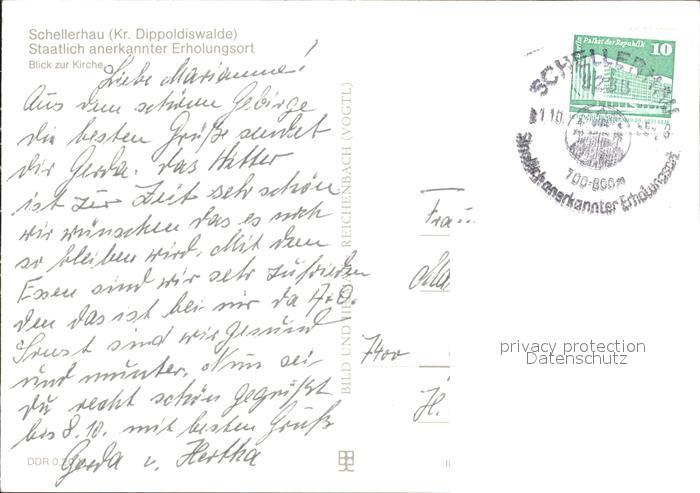 Schellerhau (Kr. Dippoldiswalde)
Staatlich anerkannter Erholungsort
Blick zur Kirche
Liebe Marianne!
Aus dem schönen Gebirge
die besten Grüße sendet
dir Gerda. das Wetter
ist zur Zeit sehr schön
wir wünschen das es noch
so bleiben wird. Mit dem
Essen sind wir sehr zufrieden
den das ist bei mir da A.O.
Sonst sind wir gesund
und munter. Nun sei
du recht schön gegrüßt
bis 8.10. mit besten Gruß
Gerda u. Hertha
DDR 0,20
BILD UND HEIMAT REICHENBACH (VOGTL)
Palast der Republik 10
SCHELLERHAU
700-800m
Staatlich anerkannter Erholungsort
Frau
7400
H.
privacy protection
Datenschutz